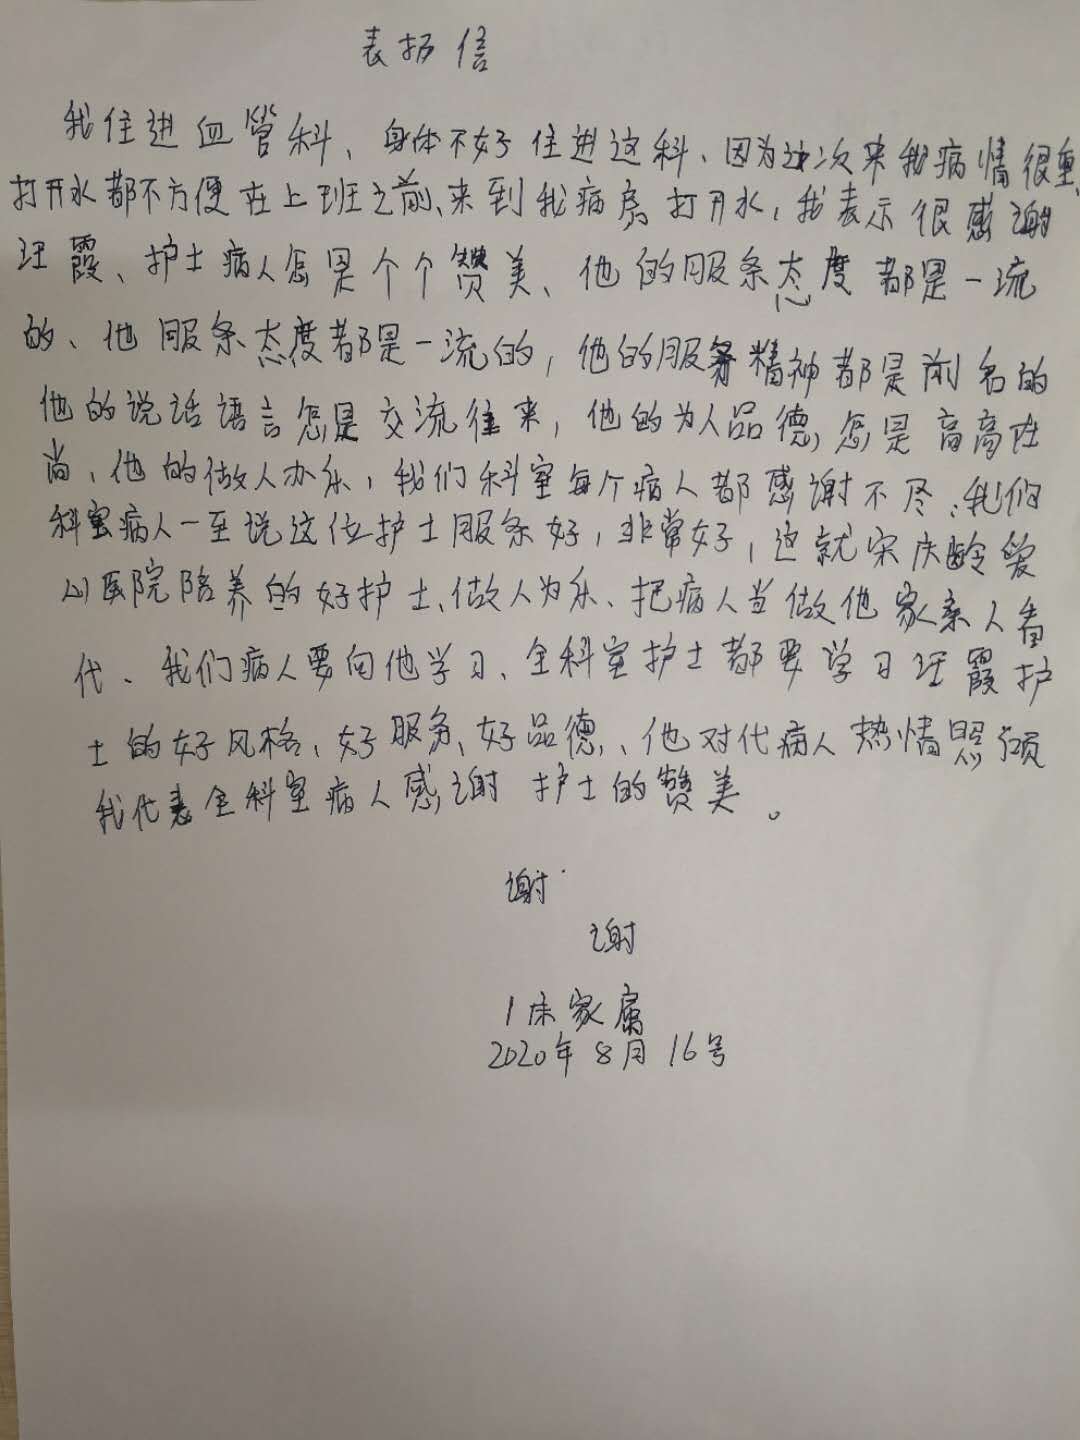 表扬信
我住进血管科、身体不好住进这科、因为这次来我病情很重、
打开水都不方便在上班之前、来到我病房打开水，我表示很感谢
汪霞、护士病人怎是个个赞美、他的服务态度都是一流
的、他服务态度都是一流的，他的服务精神都是前名的
他的说话语言怎是交流往来，他的为人品德，怎是高高在
尚、他的做人办乐，我们科室每个病人都感谢不尽、我们
科室病人一至说这位护士服务好，非常好，这就宋庆龄爱
心医院陪养的好护士、做人为乐、把病人当做他家亲人看
代、我们病人要向他学习、全科室护士都要学习汪霞护
士的好风格、好服务、好品德、、他对代病人热情照顾
我代表全科室病人感谢护士的赞美。
谢
谢
1床家属
2020年8月16号